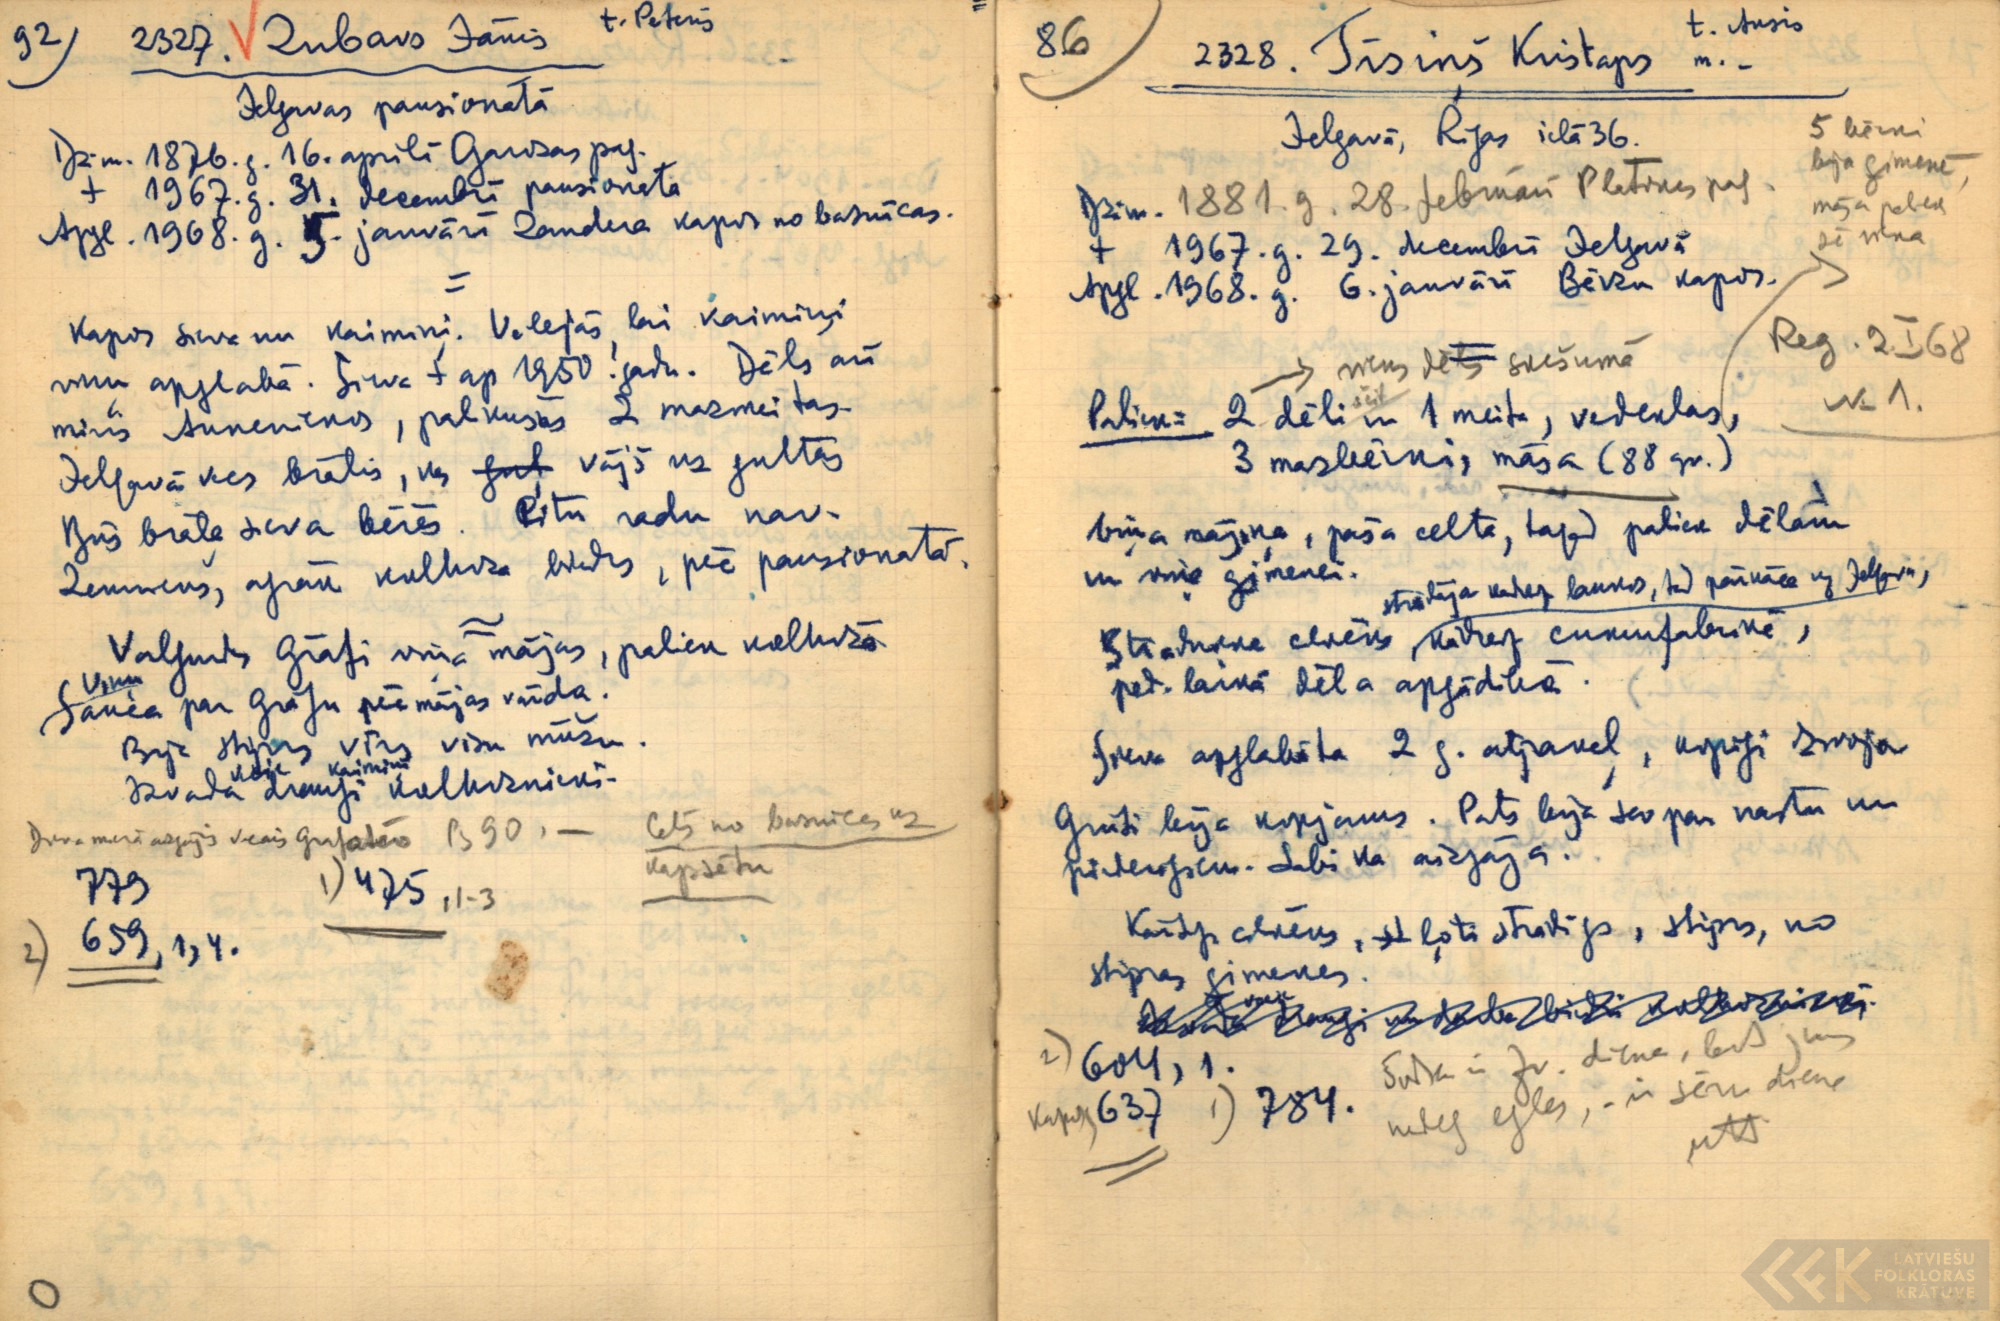 92) 2327. Zubavs Jānis t. Pēteris
Jelgavas pansionātā
Dzim. 1876. g. 16. aprīlī Garozas pag.
+ 1967. g. 31. decembrī pansionātā
Apgl. 1968. g. 5. janvārī Zandera kapos no baznīcas.
=
Kapos sieva un kaimiņi. Vēlējās, lai kaimiņi
viņu apglabā. Sieva + ap 1950. gadu. Dēls arī
miris Annenieкos, palikušas 2 mazmeitas.
Jelgavā vēs brālis, kas vājš uz gultas
Būs brāļa sieva bērēs. Citu radu nav.
Zemnieks, agrāk kolhoza biedrs, pēc pansionātā.
Valgundes Grāfi viņa mājas, paliek kolhozā
Viņu
Sauca par Grāfu pēc mājas vārda.
Bija stiprs vīrs visu mūžu.
kaimiņi
Izvada draugi kolhoznieki.
B 90, —
Celš no baznīcas uz
kapsētu
779
1) 475, 1-3
2) 659, 1, 4.
86) 2328. Tīsiņš Kristaps t. Ansis
m. -
Jelgavā, Rīgas ielā 36.
5 bērni
bija ģimenē,
māsa paliek
Dzim. 1881. g. 28. februārī Platones pag.
+ 1967. g. 29. decembrī Jelgavā
Apgl. 1968. g. 6. janvārī Bērzu kapos.
Reg. 2. I 68
N 1.
→ viens dēls svešumā
Paliek: 2 dēli un 1 meita, vedeklas,
3 mazbērni, māsa (88 g.v.)
Viņa mājiņa, paša celta, tagad paliek dēlam
un viņa ģimenei.
strādāja kādreiz laukos, tad pārnāca uz Jelgavu,
Strādnieks cilvēks, kādreiz cukurfabrikā,
pēd. laikā dēla apgādībā.
Sieva apglabāta 2 g. atpakaļ, kopīgi dzīvoja
Grūti bija kopjams. Pats bija sev par nastu un
piederīgiem. Labi ka aizgāja.
Kārtīgs cilvēks, ļoti strādīgs, stiprs, no
stipras ģimenes.
2) 604, 1.
Kapos 637 1) 784.
Šodien ir Zv. diena, bet jums
nedeg egles, - ir sēru diena
LATVIEŠU
FOLKLORAS
KRĀTUVE